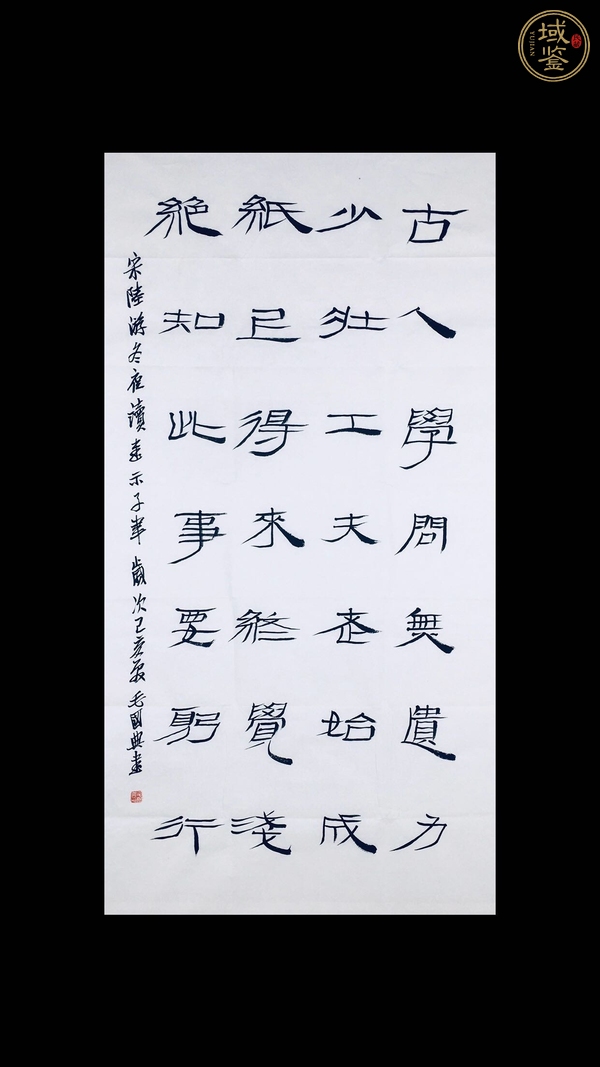 古人學問無遺力
少壯工夫老始成
紙上得來終覺淺
絕知此事要躬行
宋陸游冬夜讀書示子聿 歲次己亥夏毛國典書
域鉴
YUJIAN